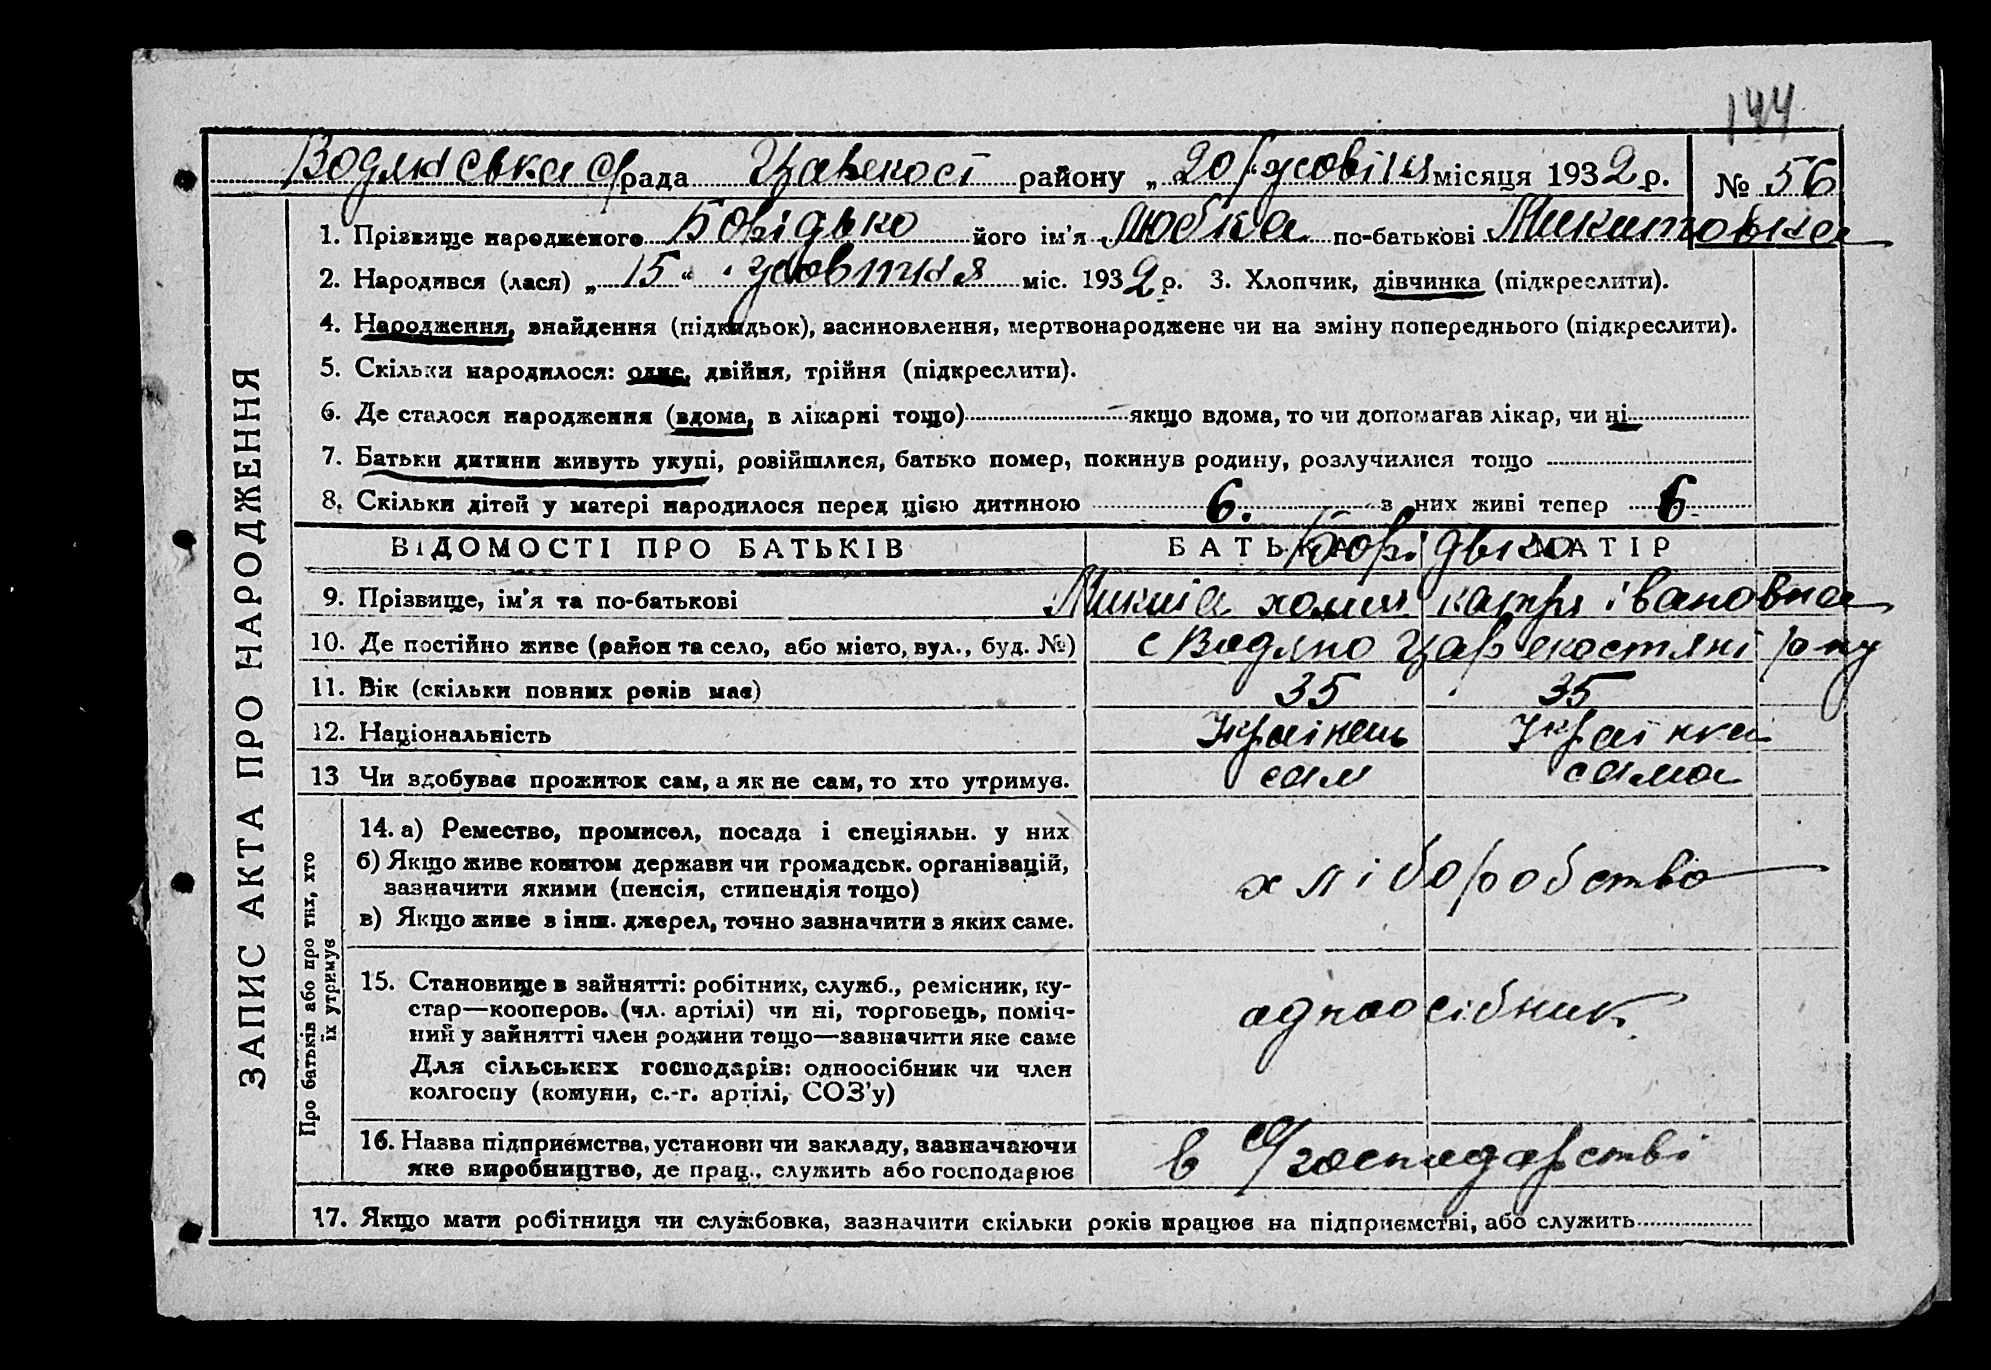 144
Водянська с/рада Царекост району „ 20 / жовтня місяця 1932 р. № 56
ЗАПИС АКТА ПРО НАРОДЖЕННЯ
1. Прізвище народженого Борідько його ім’я Любка по-батькові Микитовна
2. Народився (лася) „ 15 “ жовтня міс. 1932 р. 3. Хлопчик, дівчинка (підкреслити).
4. Народження, знайдення (підкидьок), засиновлення, мертвонароджене чи на зміну попереднього (підкреслити).
5. Скільки народилося: одне, двійня, трійня (підкреслити).
6. Де сталося народження (вдома, в лікарні тощо) якщо вдома, то чи допомагав лікар, чи ні
7. Батьки дитини живуть укупі, розійшлися, батько помер, покинув родину, розлучилися тощо
8. Скільки дітей у матері народилося перед цією дитиною 6. з них живі тепер 6
ВІДОМОСТІ ПРО БАТЬКІВ БАТЬКО МАТІР
Борідько
9. Прізвище, ім’я та по-батькові Микита хомич катря івановна
10. Де постійно живе (район та село, або місто, вул., буд. №) с Водяно Царекостянт р-ну
11. Вік (скільки повних років має) 35 35
12. Національність Українець Українка
13 Чи здобуває прожиток сам, а як не сам, то хто утримує. сам сама
Про батьків або про тих, хто
їх утримує
14. а) Ремество, промисел, посада і спеціяльн. у них
б) Якщо живе коштом держави чи громадськ. організацій,
зазначити якими (пенсія, стипендія тощо)
в) Якщо живе з інш. джерел, точно зазначити з яких саме.
хліборобство
15. Становище в зайнятті: робітник, служб., ремісник, ку-
стар—кооперов. (чл. артілі) чи ні, торговець, поміч-
ний у зайнятті член родини тощо—зазначити яке саме
Для сільських господарів: одноосібник чи член
колгоспу (комуни, с.-г. артілі, СОЗ’у)
одноосібник
16. Назва підприємства, установи чи закладу, зазначаючи
яке виробництво, де прац., служить або господарює
в с/господарстві
17. Якщо мати робітниця чи службовка, зазначити скільки років працює на підприємстві, або служить